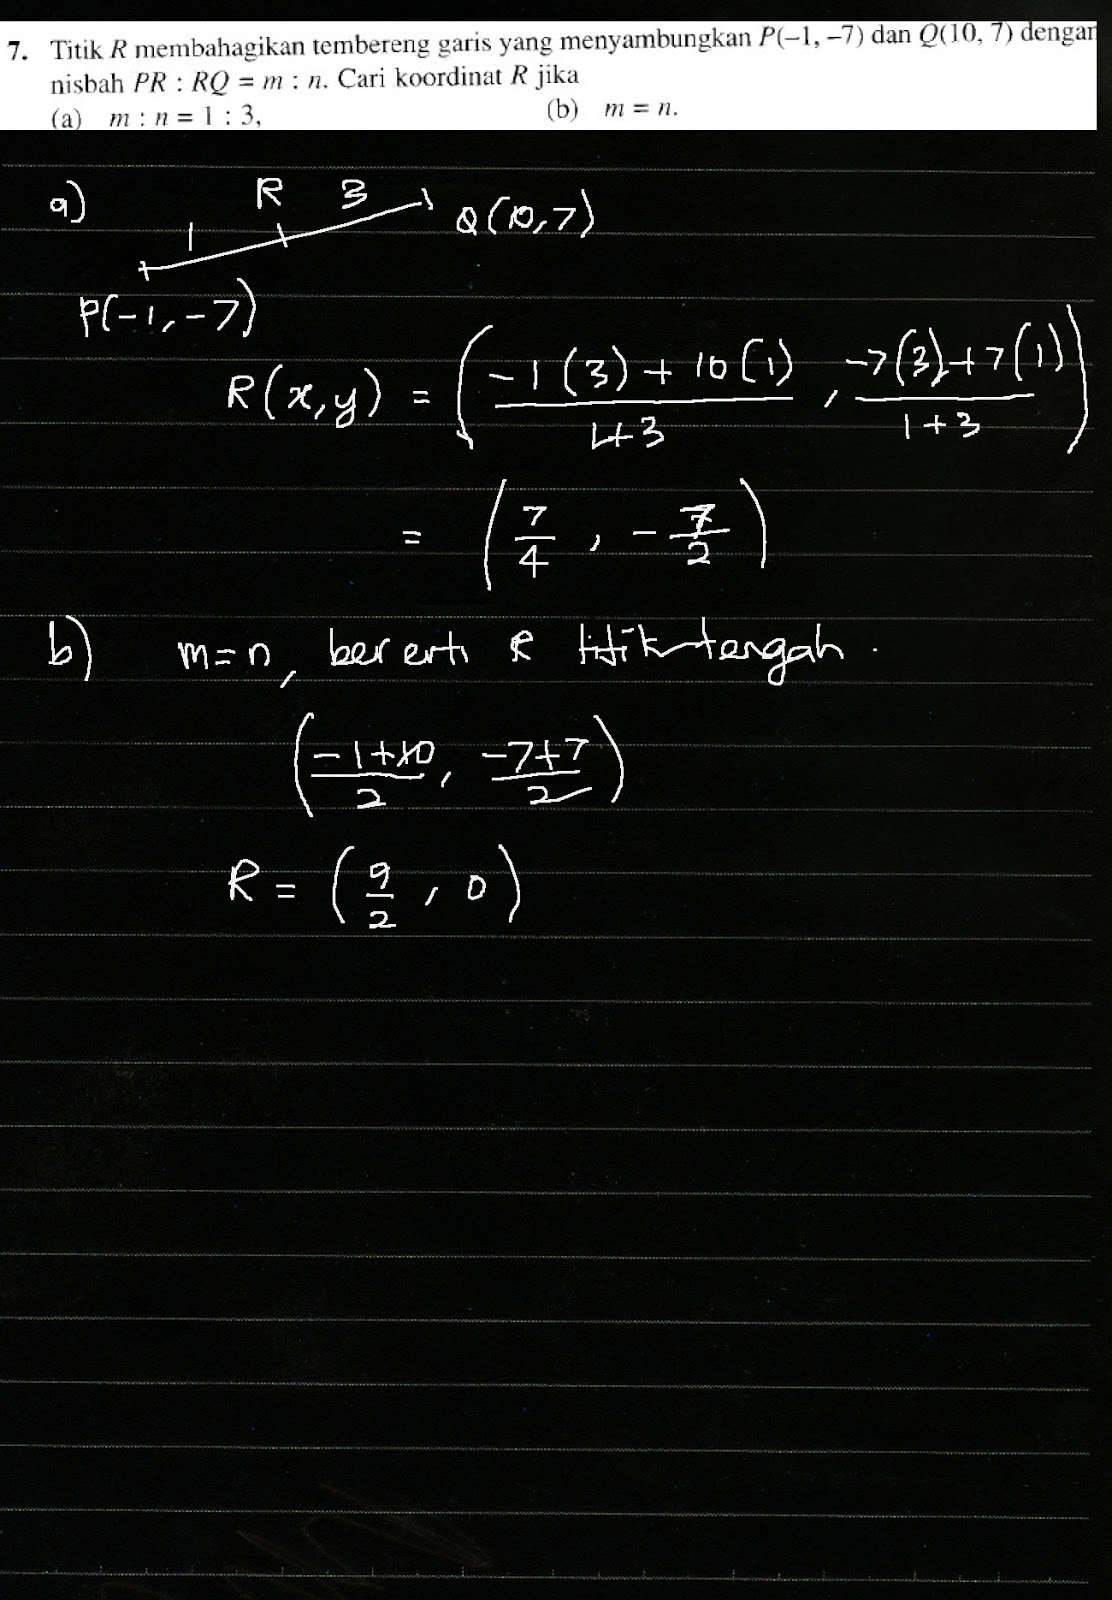 7. Titik R membahagikan tembereng garis yang menyambungkan P(–1, –7) dan Q(10, 7) dengan
nisbah PR : RQ = m : n. Cari koordinat R jika
(a) m : n = 1 : 3, (b) m = n.
a) R 3
1 Q(10,7)
P(-1,-7)
R(x,y) = (-1(3)+10(1)/1+3, -7(3)+7(1)/1+3)
= (7/4, -7/2)
b) m=n, bererti R titik tengah.
(-1+10/2, -7+7/2)
R = (9/2, 0)